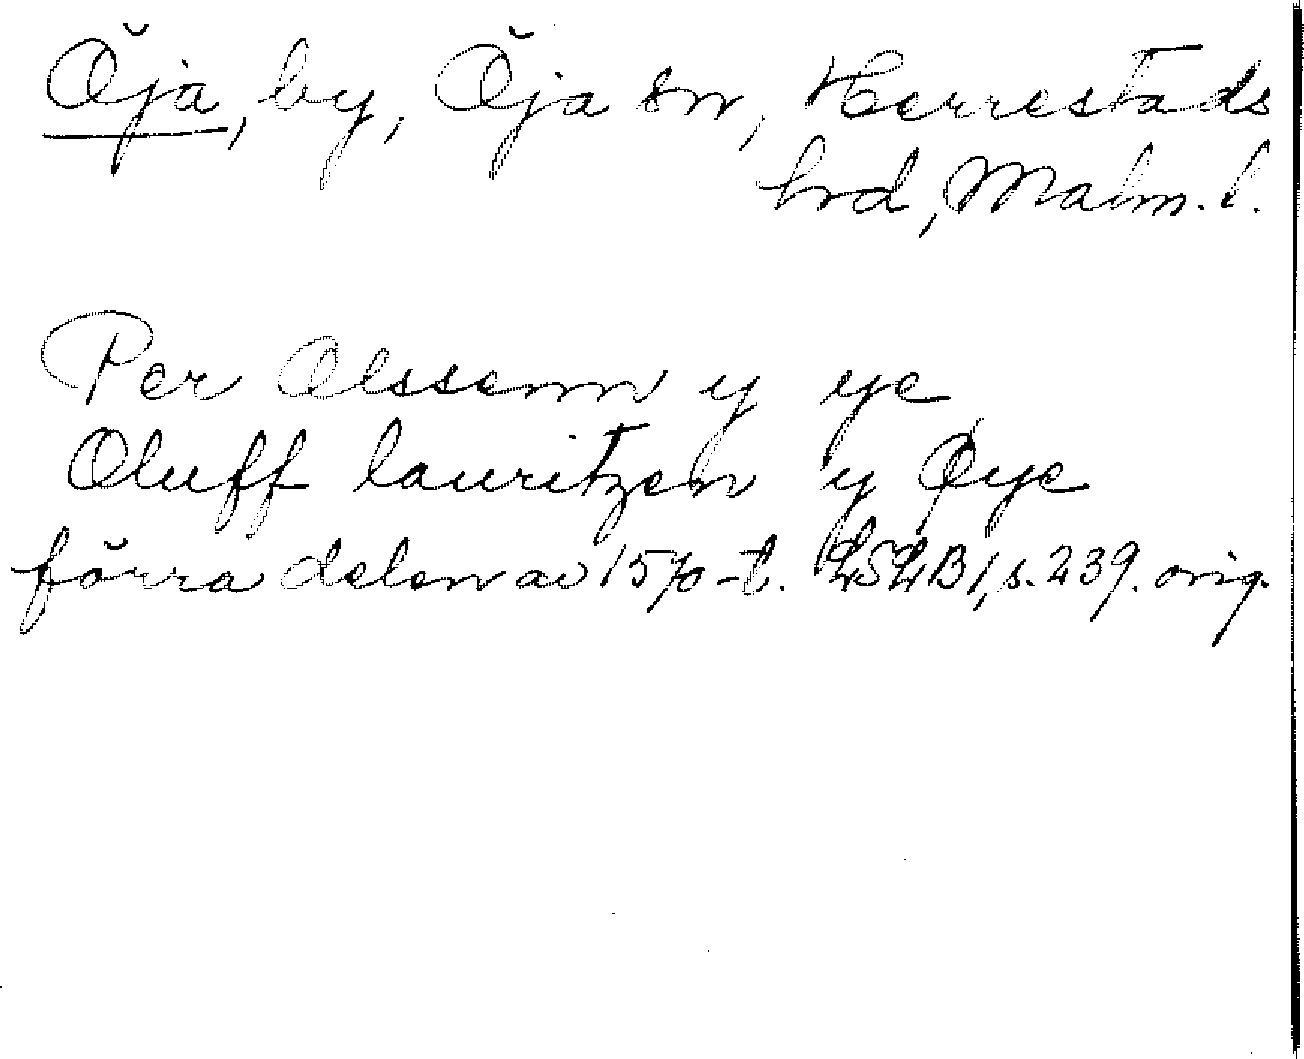 Öja, by, Öja sn, Herrestads
hrd, Malm. l.
Per Olssenn y ye
Oluff lauritzen y Øye
förra delen av 1570-t. LSLB 1, s. 239. orig.